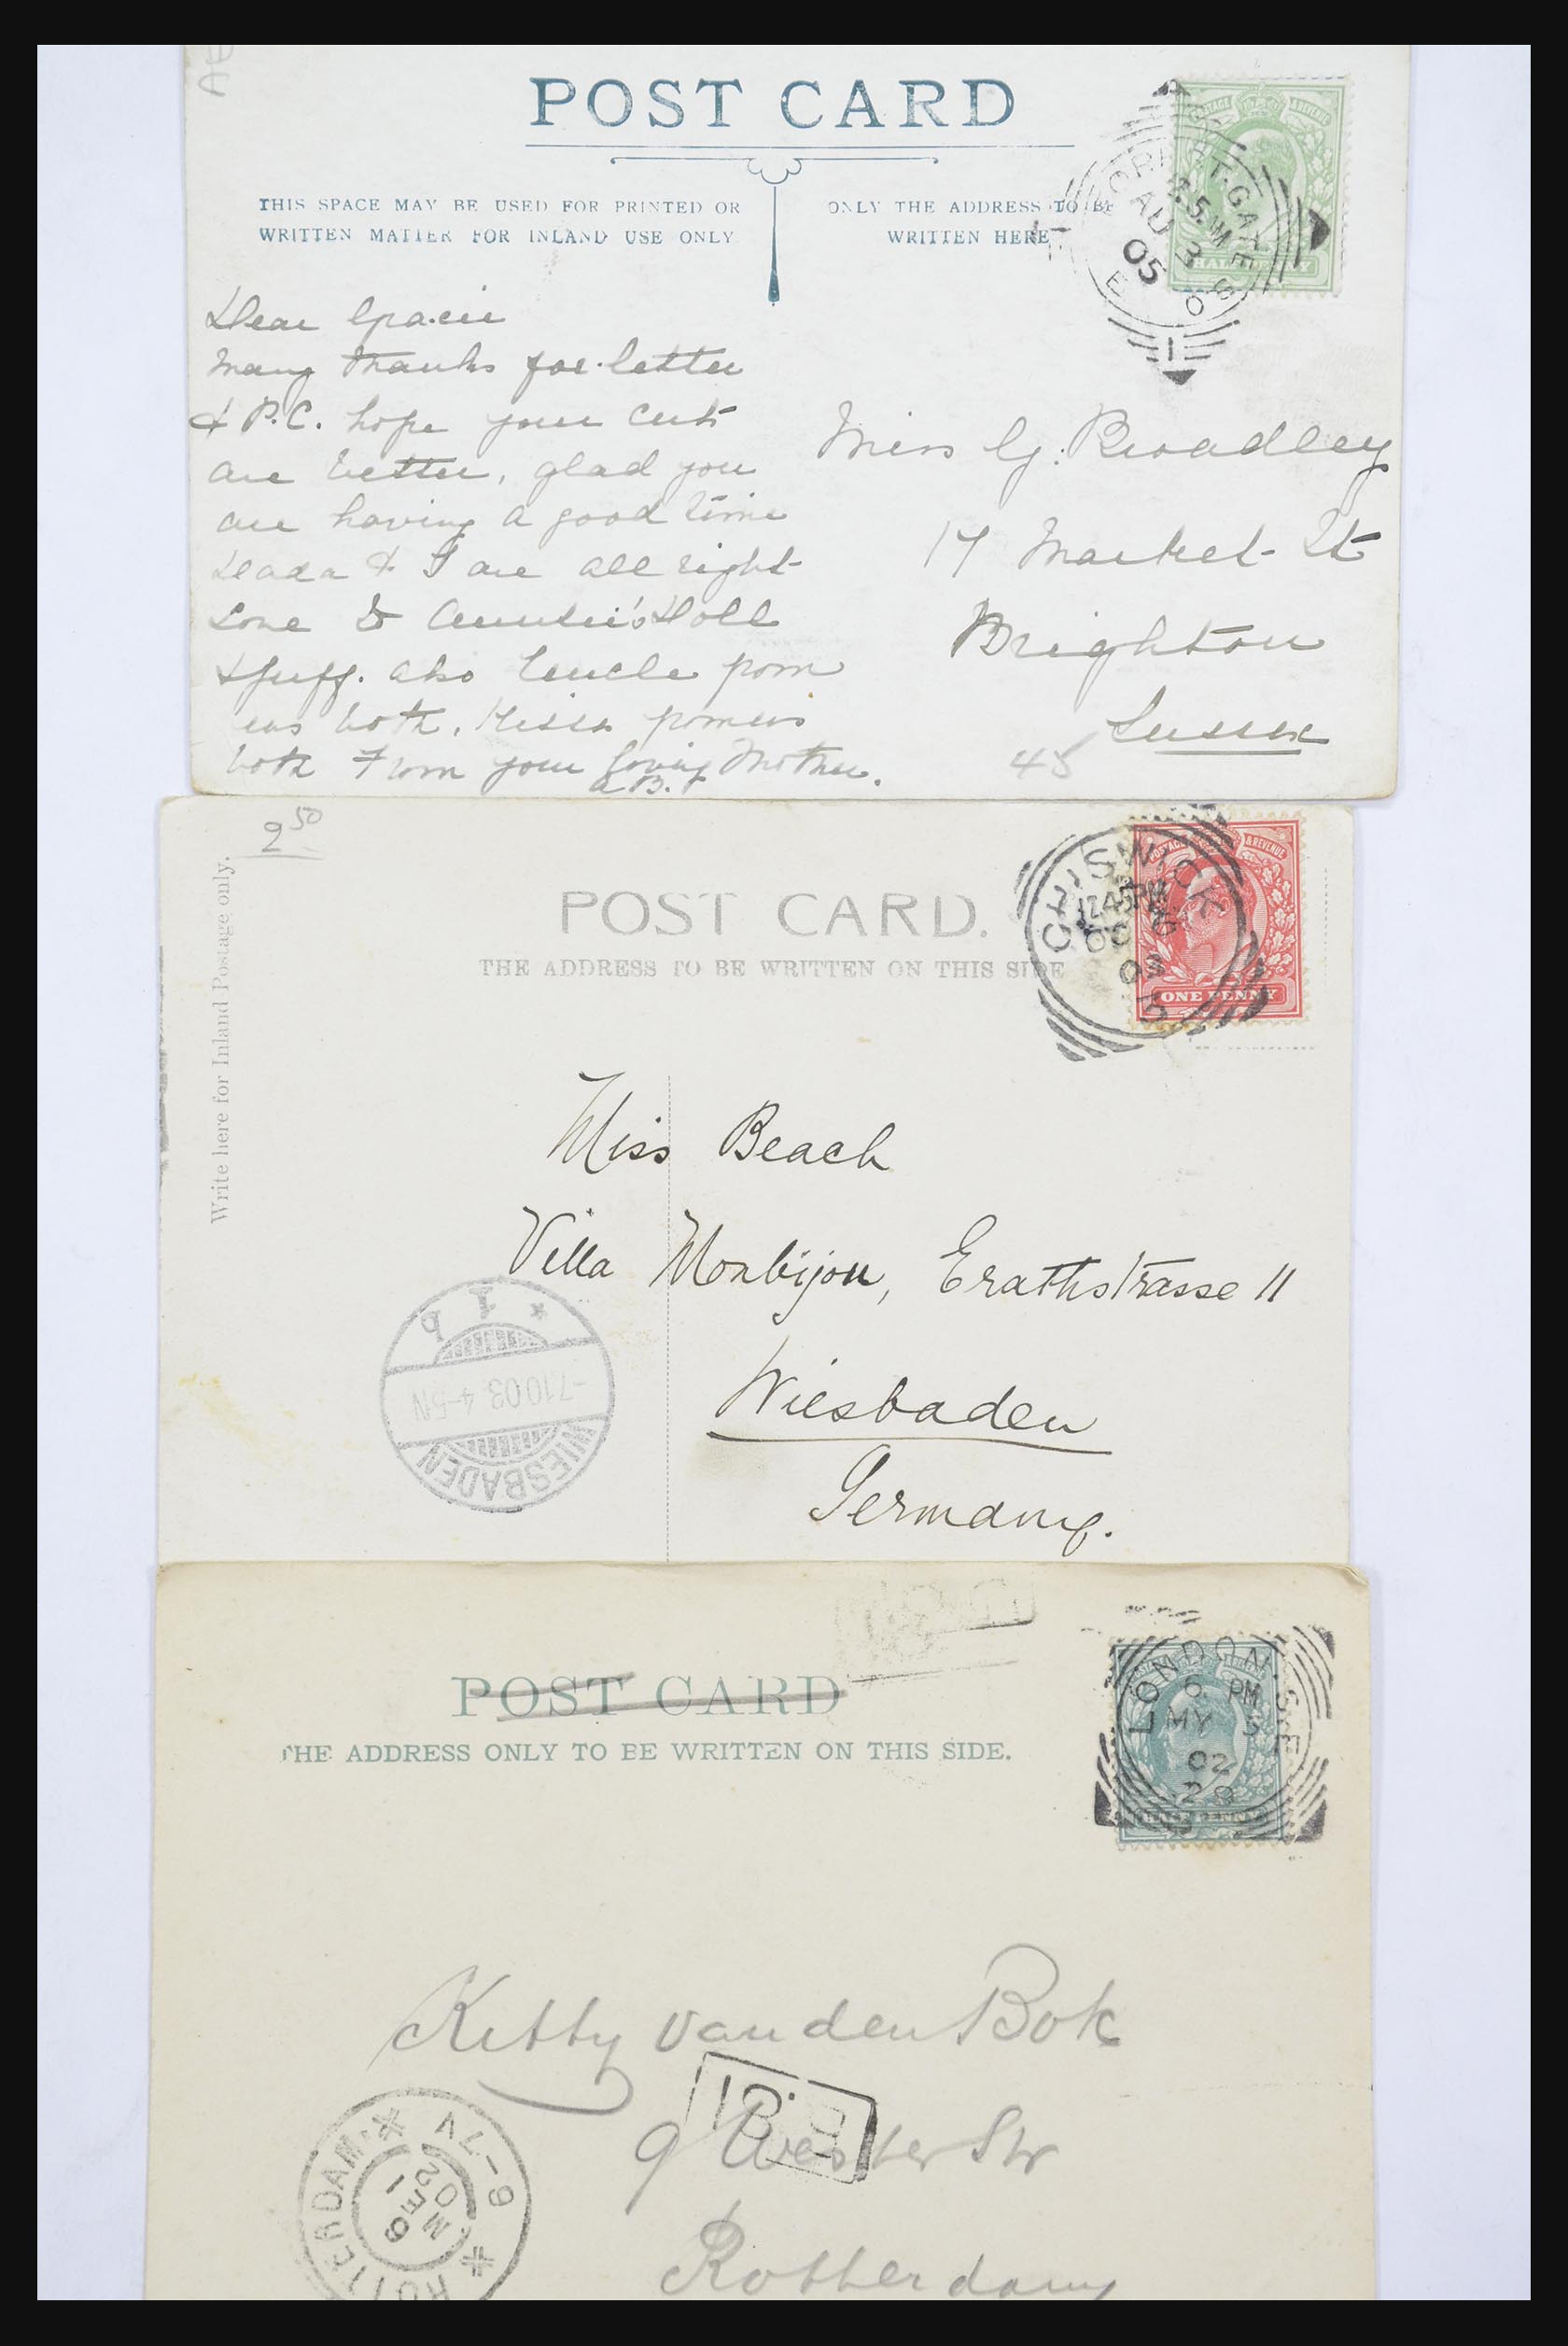 POST CARD
THIS SPACE MAY BE USED FOR PRINTED OR
WRITTEN MATTER FOR INLAND USE ONLY
ONLY THE ADDRESS TO BE
WRITTEN HERE
AU 3
05
HALFPENNY
Dear Gracie
Many thanks for letter
& P.C. hope your cuts
are better, glad you
are having a good time
Dada & I are all right
Love to Auntie's Doll
also Uncle from
us both. Kisses from us
both From your loving Mother.
Miss G. Broadley
17 Market St
Brighton
Sussex
45
2 50
Write here for Inland Postage only.
POST CARD.
THE ADDRESS TO BE WRITTEN ON THIS SIDE
CHISWICK
12.45 PM
OC 6
03
POSTAGE & REVENUE
ONE PENNY
Miss Beach
Villa Monbijou, Erathstrasse 11
Wiesbaden
Germany.
1 b
-7.10.03.4-5N
WIESBADEN
POST CARD
THE ADDRESS ONLY TO BE WRITTEN ON THIS SIDE.
LONDON. S.E
6 PM
MY 5
02
28
Kitty van den Bok
9 Wester Str
Rotterdam
ROTTERDAM
6 MEI 02